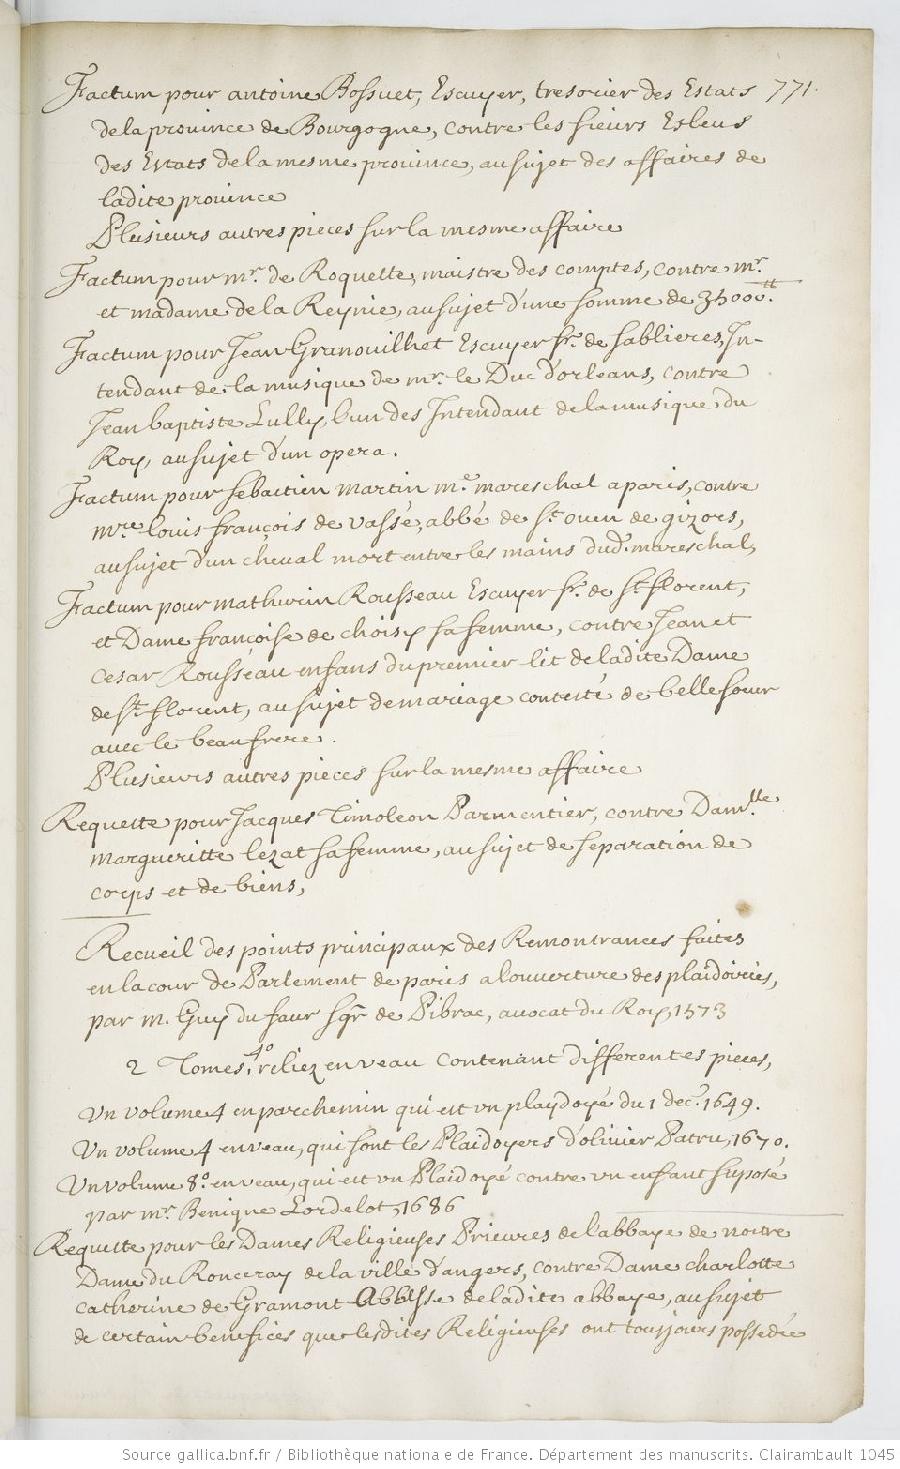 Factum pour antoine Bossuet, Escuyer, tresorier des Estats 771.
de la prouince de Bourgogne, contre les sieurs Esleus
des Estats de la mesme prouince, au sujet des affaires de
ladite prouince
Plusieurs autres pieces sur la mesme affaire
Factum pour mr. de Roquette, maistre des comptes, contre mr.
et madame de la Reynie, au sujet d'une somme de 35000tt.
Factum pour Jean Granouilhet Escuyer sr. de sablieres, In-
tendant de la musique de mr. le Duc d'orleans, contre
Jean baptiste Lully, l'un des Intendant de la musique du
Roy, au sujet d'un opera.
Factum pour sebastien martin me. mareschal a paris, contre
mre. louis françois de vassé, abbé de st. ouen de gizors,
au sujet d'un cheval mort entre les mains dud. mareschal,
Factum pour mathurin Rousseau Escuyer sr. de st. florent,
et Dame françoise de choisy sa femme, contre Jean et
Cesar Rousseau enfans du premier lit de ladite Dame
de st. florent, au sujet de mariage contesté de belle soeur
auec le beau frere.
Plusieurs autres pieces sur la mesme affaire
Requeste pour Jacques Timoleon Parmentier, contre Damlle.
margueritte lezat sa femme, au sujet de separation de
corps et de biens,
Recueil des points principaux des Remontrances faites
en la cour de Parlement de paris a louuerture des plaidoiries,
par m. Guy du faur sgr. de Pibrac, auocat du Roy, 1573
2 Tomes 4o. reliez en veau contenant differentes pieces,
Vn volume 4 en parchemin qui est vn playdoyé du 1 dec. 1649.
Vn volume 4 en veau, qui sont les Plaidoyers d'oliuier Patru, 1670.
Vn volume 8o. en veau, qui est vn Plaidoyé contre vn enfant suposé
par mr. Benigne Lordelot, 1686
Requeste pour les Dames Religieuses Prieures de l'abbaye de nostre
Dame du Ronceray de la ville d'angers, contre Dame charlotte
Catherine de Gramont Abbesse de ladite abbaye, au sujet
de certain benefices que lesdites Religieuses ont tousjours possedée
Source gallica.bnf.fr / Bibliothèque nationale de France. Département des manuscrits. Clairambault 1045